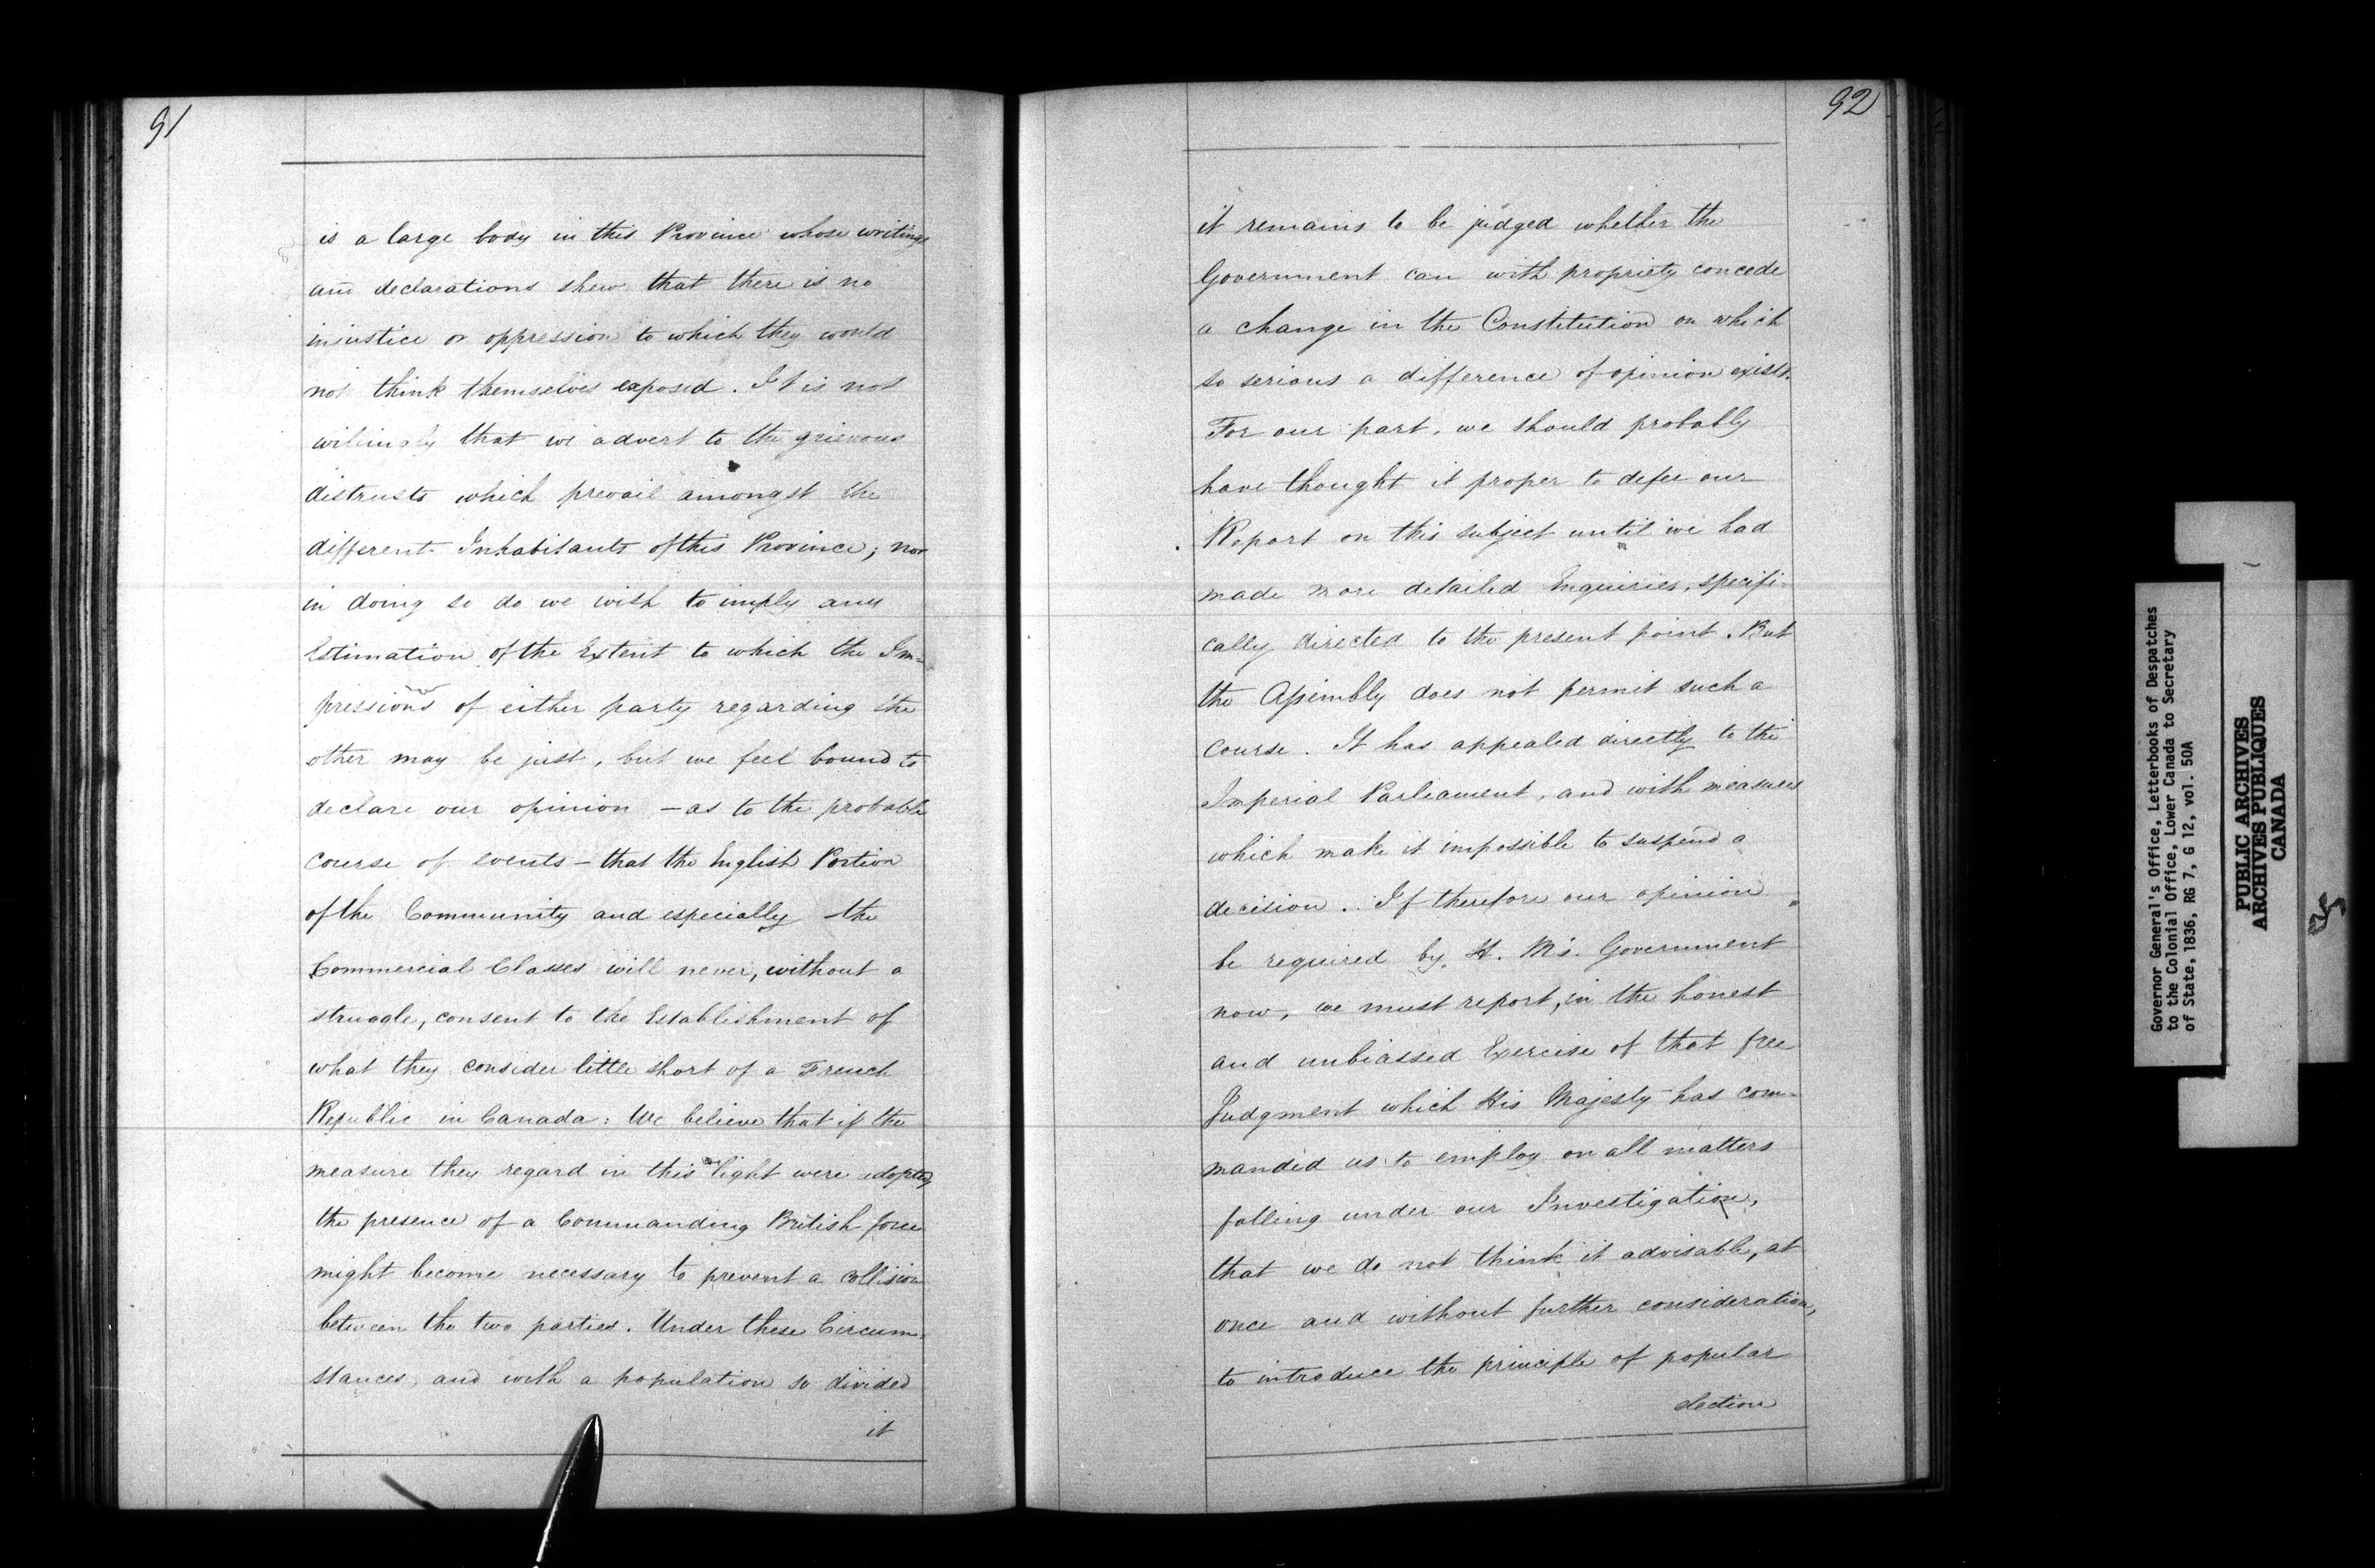 91
is a large body in this Province whose writings
and declarations shew that there is no
injustice or oppression to which they would
not think themselves exposed. It is not
willingly that we advert to the grievous
distrusts which prevail amongst the
different Inhabitants of this Province; nor
in doing so do we wish to imply any
Estimation of the Extent to which the Im-
pressions of either party regarding the
other may be just, but we feel bound to
declare our opinion – as to the probable
course of events – that the English Portion
of the Community and especially the
Commercial Classes will never, without a
struggle, consent to the Establishment of
what they consider little short of a French
Republic in Canada: We believe that if the
measure they regard in this light were adopted,
the presence of a Commanding British force
might become necessary to prevent a collision
between the two parties. Under these Circum-
stances, and with a population so divided
it
92
it remains to be judged whether the
Government can with propriety concede
a change in the Constitution on which
so serious a difference of opinion exists.
For our part, we should probably
have thought it proper to defer our
Report on this subject until we had
made more detailed Enquiries, specifi-
cally directed to the present point. But
the Assembly does not permit such a
course. It has appealed directly to the
Imperial Parliament, and with measures
which make it impossible to suspend a
decision. If therefore our opinion
be required by H. M's. Government
now, we must report, in the honest
and unbiassed Exercise of that free
Judgment which His Majesty has com-
manded us to employ on all matters
falling under our Investigation,
that we do not think it advisable, at
once and without further consideration,
to introduce the principle of popular
election
Governor General's Office, Letterbooks of Despatches
to the Colonial Office, Lower Canada to Secretary
of State, 1836, RG 7, G 12, vol. 50A
PUBLIC ARCHIVES
ARCHIVES PUBLIQUES
CANADA